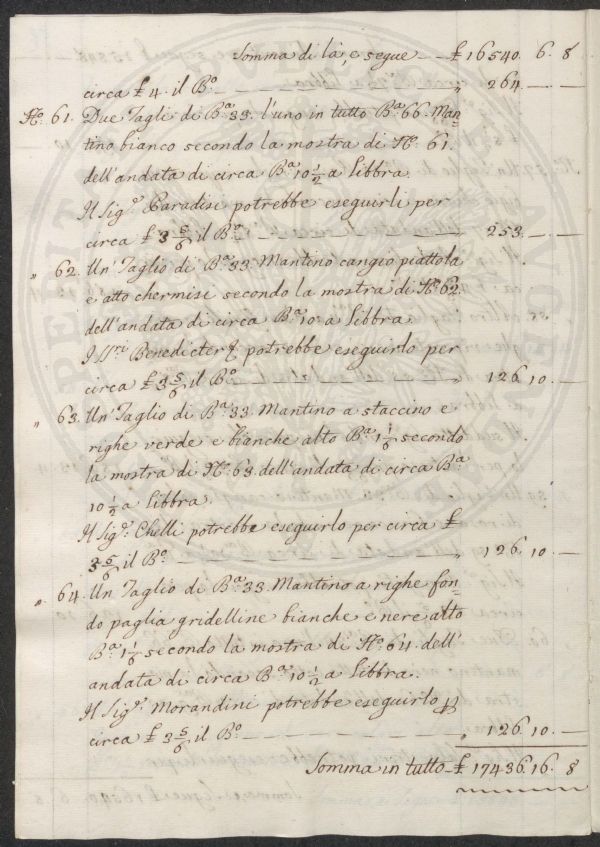 Somma di là, e segue — £ 16540. 6. 8
circa £ 4. il Bº. — " 264. —
Nº. 61. Due Tagli di Bª. 33. l'uno in tutto Bª. 66. Man=
tino bianco secondo la mostra di Nº. 61.
dell'andata di circa Bª. 10 1/2 a Libbra.
Il Sigº. Paradisi potrebbe eseguirli per
circa £ 3 5/6 il Bº. — " 253. —
" 62. Un' Taglio di Bª. 33. Mantino cangio piattola
e atto chermisi secondo la mostra di Nº. 62.
dell'andata di circa Bª. 10. a Libbra.
I SSri. Benedicter & potrebbe eseguirlo per
circa £ 3 5/6 il Bº. — " 126. 10. —
" 63. Un' Taglio di Bª. 33. Mantino a staccino e
righe verde e bianche alto Bª. 1 1/6 secondo
la mostra di Nº. 63. dell'andata di circa Bª.
10 1/2 a Libbra.
Il Sigº. Chelli potrebbe eseguirlo per circa £
3 5/6 il Bº. — " 126. 10. —
" 64. Un Taglio di Bª. 33. Mantino a righe fon=
do paglia gridelline bianche e nere alto
Bª. 1 1/6 secondo la mostra di Nº. 64. dell'
andata di circa Bª. 10 1/2 a Libbra.
Il Sigº. Morandini potrebbe eseguirlo p
circa £ 3 5/6 il Bº. — " 126. 10. —
Somma in tutto — £ 17436. 16. 8